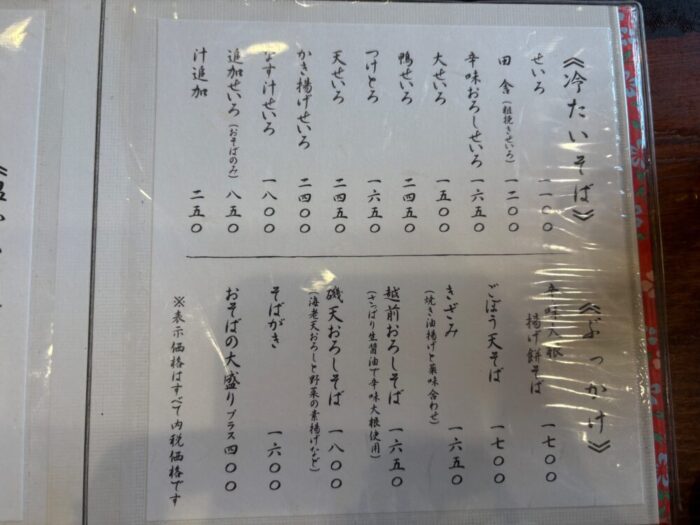 《冷たいそば》
せいろ 一一〇〇
田舎(粗挽きせいろ) 一二〇〇
辛味おろしせいろ 一六五〇
大せいろ 一五〇〇
鴨せいろ 二四五〇
つけとろ 一六五〇
天せいろ 二四五〇
かき揚げせいろ 二四〇〇
なす汁せいろ 一八〇〇
追加せいろ(おそばのみ) 八五〇
汁追加 二五〇
《ぶっかけ》
辛味大根
揚げ餅そば 一七〇〇
ごぼう天そば 一七〇〇
きざみ 一六五〇
(焼き油揚げと薬味合わせ)
越前おろしそば 一六五〇
(さっぱり生醤油で辛味大根使用)
磯天おろしそば 一八〇〇
(海老天おろしと野菜の素揚げなど)
そばがき 一六〇〇
おそばの大盛り プラス四〇〇
※表示価格はすべて内税価格です